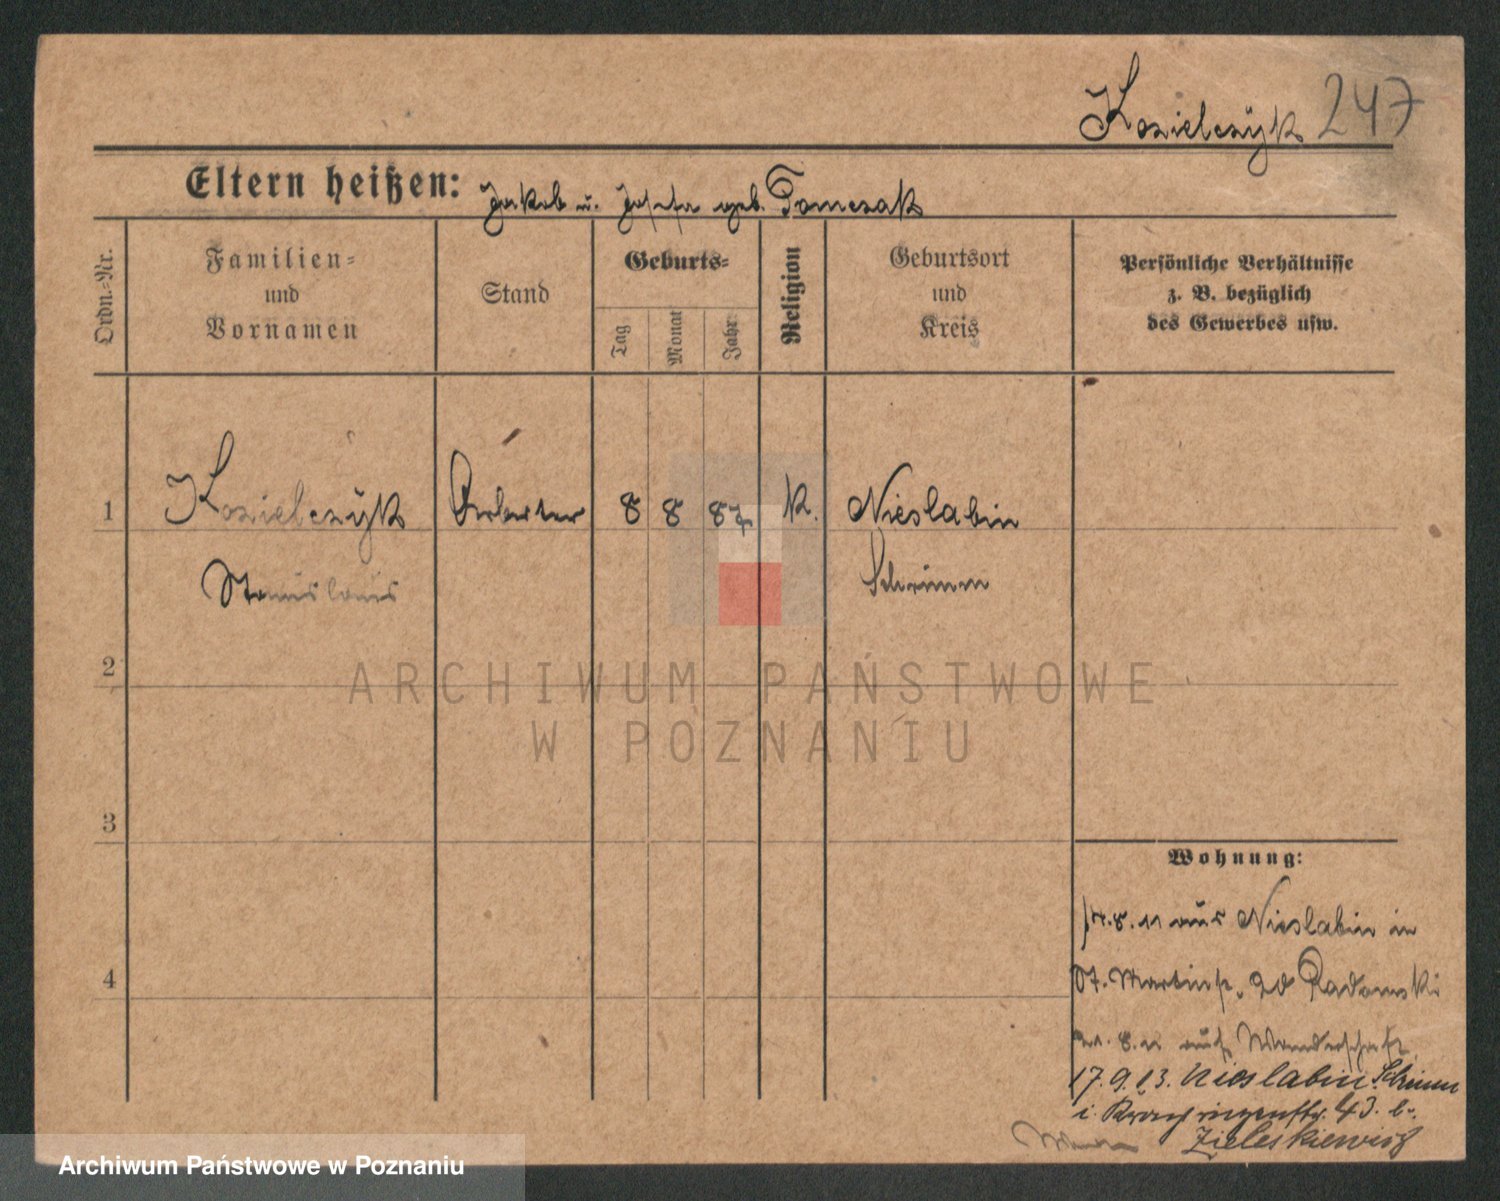 Kozielczyk 247
Eltern heißen: Jakob u. Josefa geb. Tomczak
Ordn.-Nr.
Familien-
und
Vornamen
Stand
Geburts-
Tag
Monat
Jahr
Religion
Geburtsort
und
Kreis
Persönliche Verhältnisse
z. B. bezüglich
des Gewerbes usw.
1 Kozielczyk Arbeiter 8 8 87 k. Nieslabin
Stanislaus Schrimm
2
ARCHIWUM PAŃSTWOWE
W POZNANIU
3
4
Wohnung:
14.8.11 aus Nieslabin in
St. Martinstr. 20 Radomski
8.11 auf Wanderschaft
17.9.13. Nieslabin Schrimm
i. 43. b.
Zieleskiewicz
Archiwum Państwowe w Poznaniu